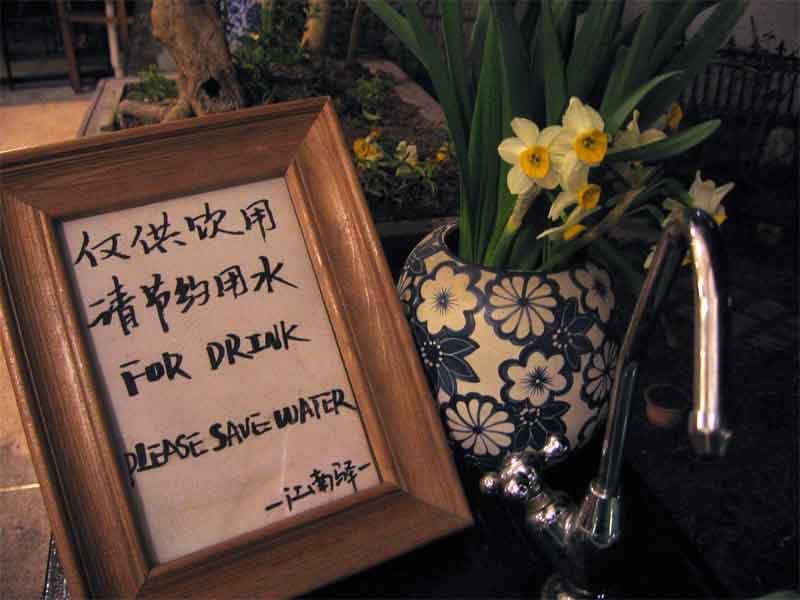 仅供饮用
请节约用水
FOR DRINK
PLEASE SAVE WATER
-江南驿-